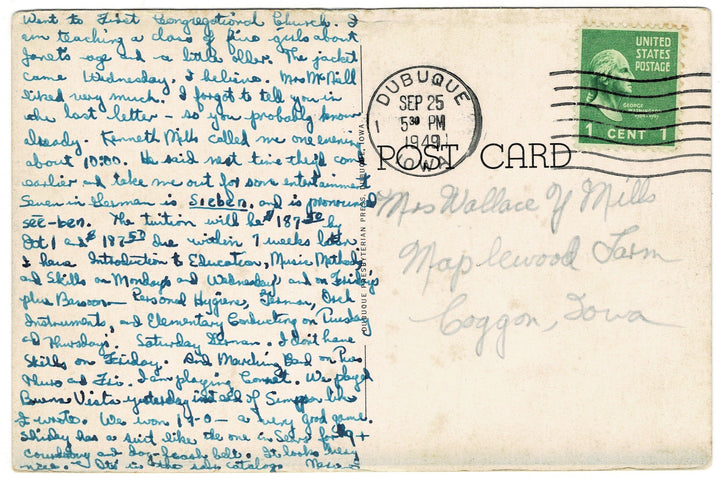 Went to First Congregational Church. I
am teaching a class of five girls about
Janet's age and a little older. The jacket
came Wednesday, I believe. Mrs McNall
liked very much. I forgot to tell you in
the last letter - so you probably know
already. Kenneth Mills called me one evening
about 10:00. He said next time he'd come
earlier and take me out for some entertainment
Seven in German is Sieben, and is pronounced
see-ben. The tuition will be $187.50 by
Oct 1 and $187.50 due within 7 weeks later
I have Introduction to Education, Music Methods
and Skills on Mondays and Wednesdays and on Fridays
plus Bassoon - Personal Hygiene, German, Orch
Instrument, and Elementary Conducting on Tuesdays
and Thursdays. Saturday German. I don't have
Skills on Friday. And Marching Band on Tues
Thurs and Fri. I am playing Cornet. We played
Buena Vista yesterday instead of Simpson like
I wrote. We won 19-0 - a very good game.
Shirley has a suit like the one in Sears for
corduroy and belt. It looks very
nice. - It's in the catalog.
DUBUQUE PRESBYTERIAN PRESS, DUBUQUE, IOWA
DUBUQUE
SEP 25
5 30 PM
1949
IOWA
UNITED
STATES
POSTAGE
GEORGE WASHINGTON
1 CENT 1
POST CARD
Mrs Wallace Y Mills
Maplewood Farm
Coggon, Iowa